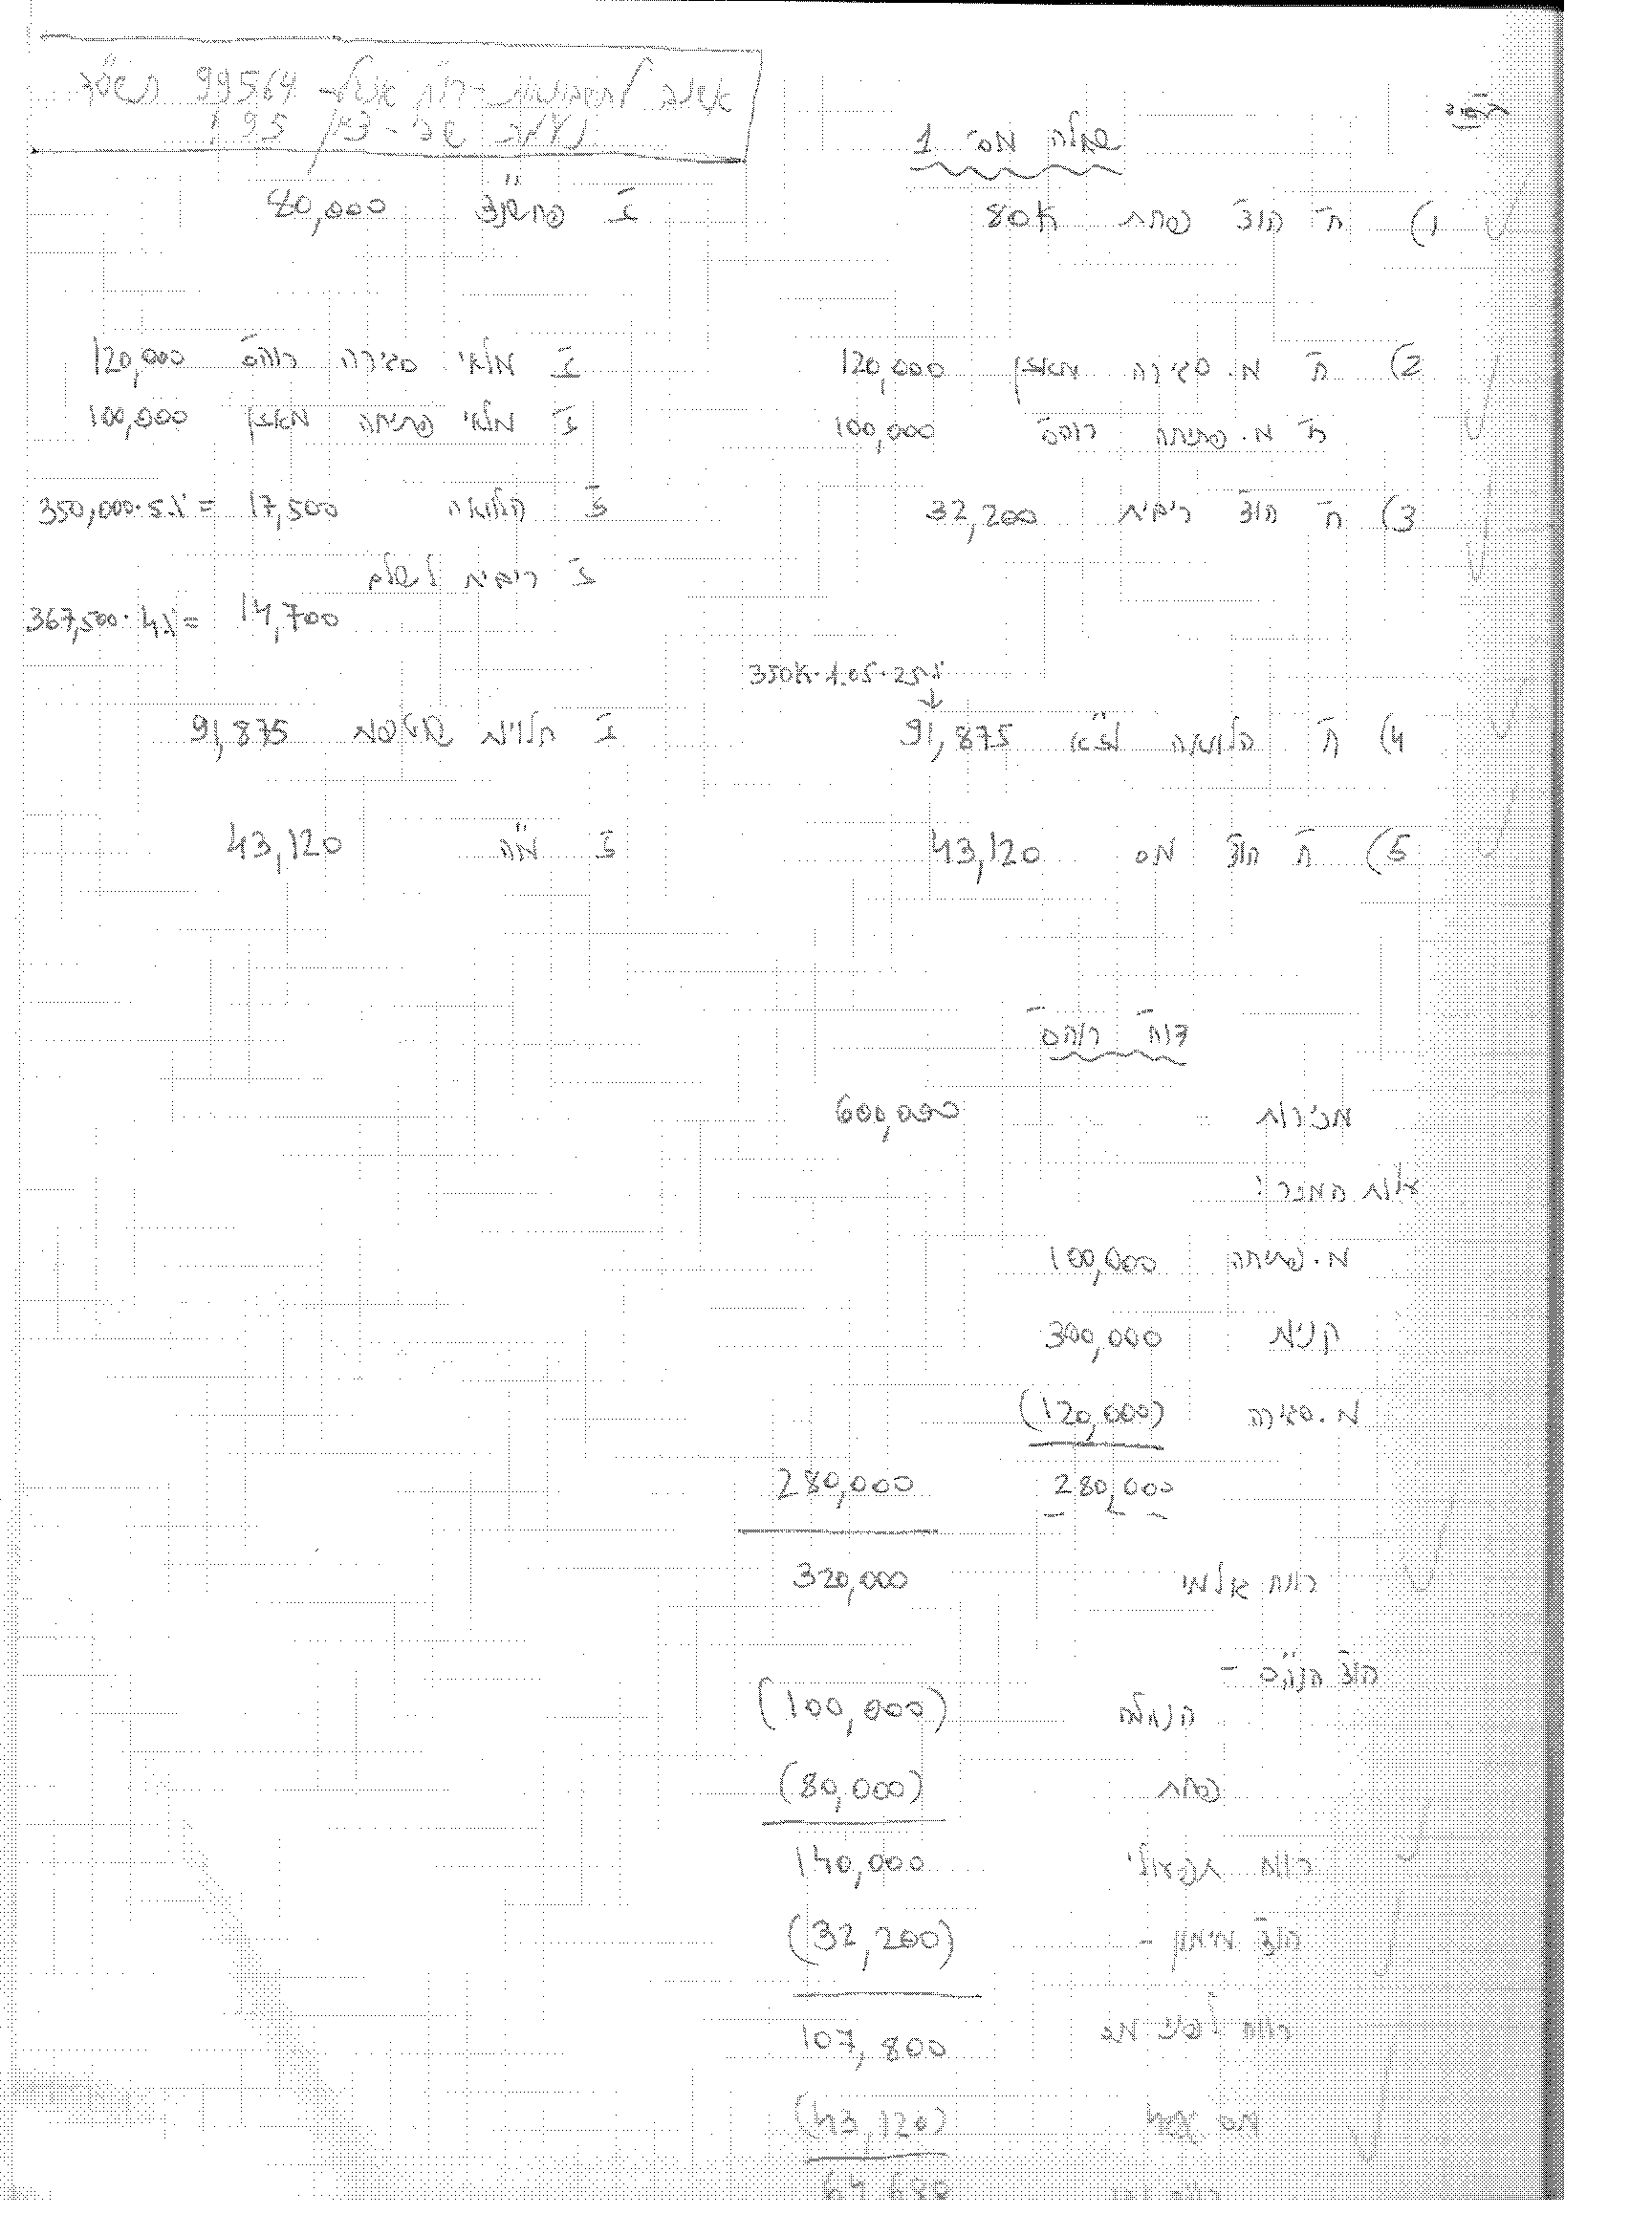 99564
195
שאלה מס' 1
1) ח' הוצ' פחת 80K ז' פחשנצ 80,000
2) ח' מ. סגירה מאזן 120,000 ז' מלאי סגירה רוהס 120,000
ח' מ. פתיחה רוהס 100,000 ז' מלאי פתיחה מאזן 100,000
3) ח' הוצ' ריבית 32,200 ז' הלוואה 17,500 = 350,000·5%
ז' ריבית לשלם
14,700 = 367,500·4%
350K·1.05·25%
4) ח' הלוואה לז"א 91,875 ז' חלויות שוטפות 91,875
5) ח' הוצ' מס 43,120 ז' מ"ה 43,120
דוח רוהס
מכירות 600,000
עלות המכר:
מ. פתיחה 100,000
קניות 300,000
מ. סגירה (120,000)
280,000 280,000
רווח גולמי 320,000
הוצ' הנה"כ -
הנהלה (100,000)
פחת (80,000)
רווח תפעולי 140,000
הוצ' מימון - (32,200)
רווח לפני מס 107,800
מס (43,120)
64,680